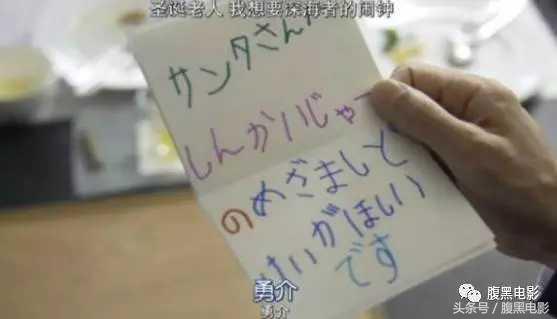 圣诞老人 我想要深海者的闹钟
サンタさん
しんかいじゃー
のめざましと
けいがほしい
です
勇介
勇介
腹黑电影
头条号 / 腹黑电影